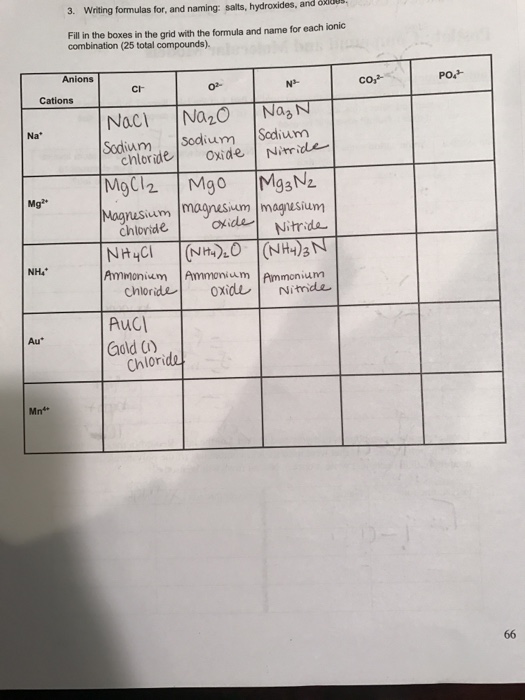 3. Writing formulas for, and naming: salts, hydroxides, and oxides.
Fill in the boxes in the grid with the formula and name for each ionic
combination (25 total compounds).
Anions
Cations
Cl⁻
O²⁻
N³⁻
CO₃²⁻
PO₄³⁻
Na⁺
NaCl
Sodium
chloride
Na₂O
sodium
oxide
Na₃N
Sodium
Nitride
Mg²⁺
MgCl₂
Magnesium
chloride
MgO
magnesium
oxide
Mg₃N₂
magnesium
Nitride
NH₄⁺
NH₄Cl
Ammonium
chloride
(NH₄)₂O
Ammonium
oxide
(NH₄)₃N
Ammonium
Nitride
Au⁺
AuCl
Gold (1)
Chloride
Mn⁴⁺
66